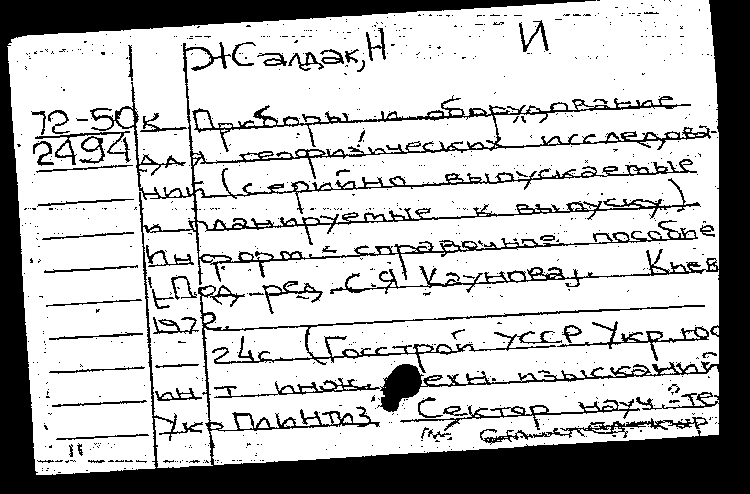 Жалдак, Н И
72-50к Приборы и оборудование
2494 для геофизических исследова-
ний (серийно выпускаемые
и планируемые к выпуску)
Информ.-справочное пособие
[Под ред. С.Я. Каунова]. Киев
1972.
24с. (Госстрой УССР. Укр. гос
ин-т инж. техн. изысканий
УкрПИИНТИЗ. Сектор науч.-те